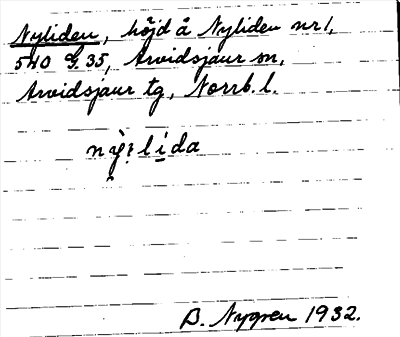 Nyliden, höjd å Nyliden nr 1,
540 G 35, Arvidsjaur sn,
Arvidsjaur tg, Norrb. l.
nỳ:lida
B. Nygren 1932.